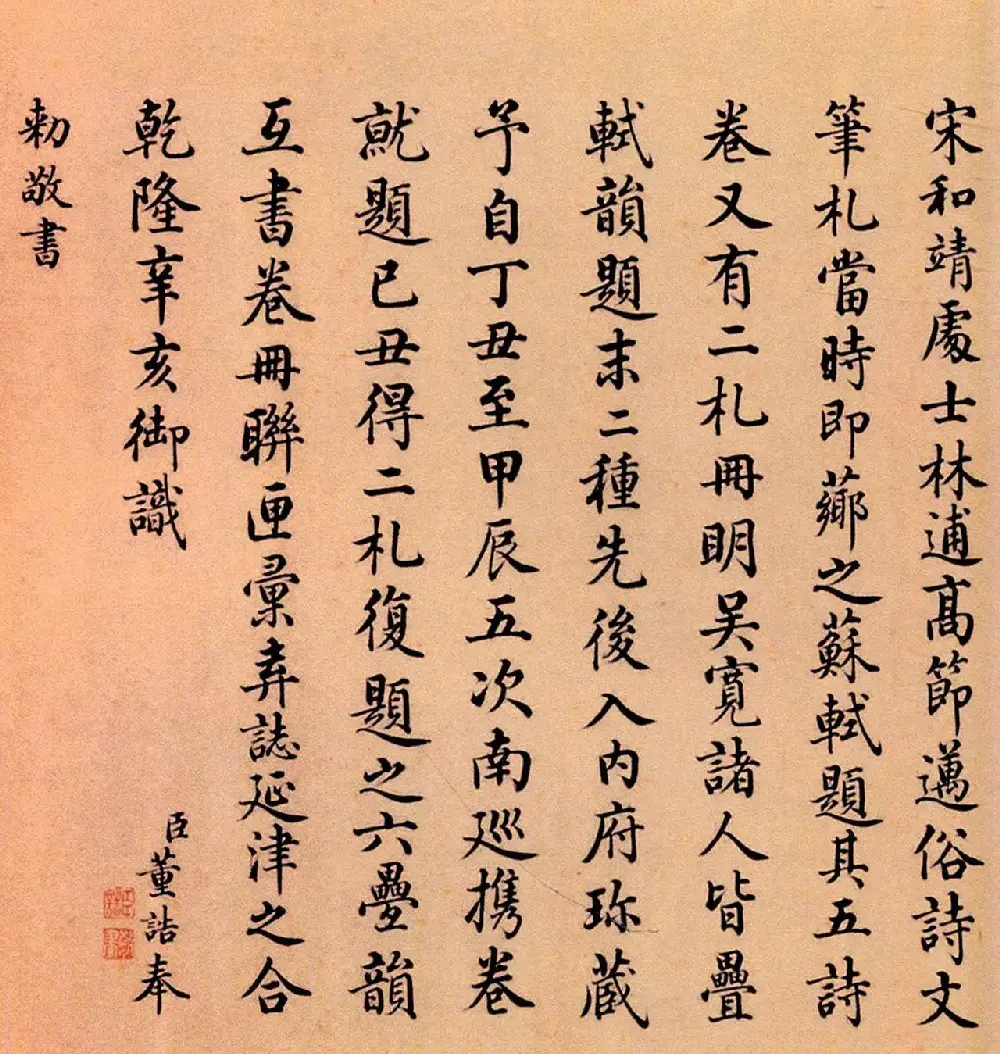 宋和靖處士林逋高節邁俗詩文
筆札當時即薌之蘇軾題其五詩
卷又有二札冊明吳寬諸人皆疊
軾韻題末二種先後入内府珎藏
予自丁丑至甲辰五次南巡携卷
就題己丑得二札復題之六疊韻
互書卷冊聯匣彙弆誌延津之合
乾隆辛亥御識
臣董誥奉
勅敬書